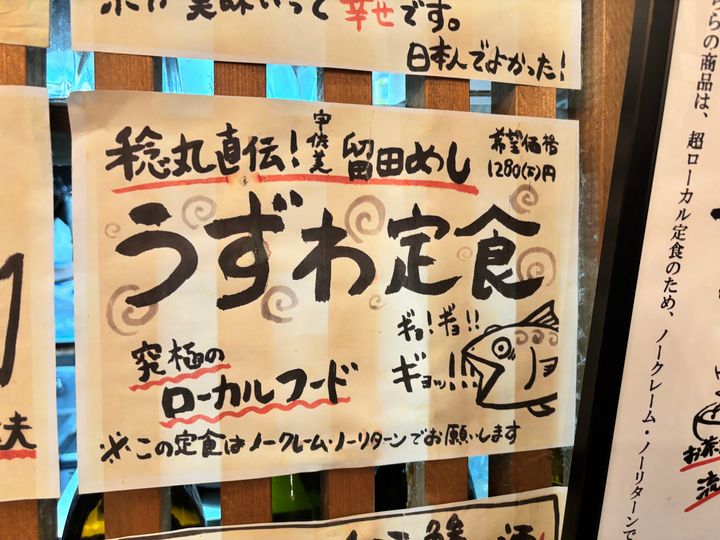 美味いって幸せです。
日本人でよかった!
稔丸直伝!宇佐美留田めし
希望価格
1280(税)円
うずわ定食
究極の
ローカルフード
ギョ!ギョ!!
ギョッ!!
※この定食はノークレーム・ノーリターンでお願いします
らの商品は、超ローカル定食のため、ノークレーム・ノーリターンで